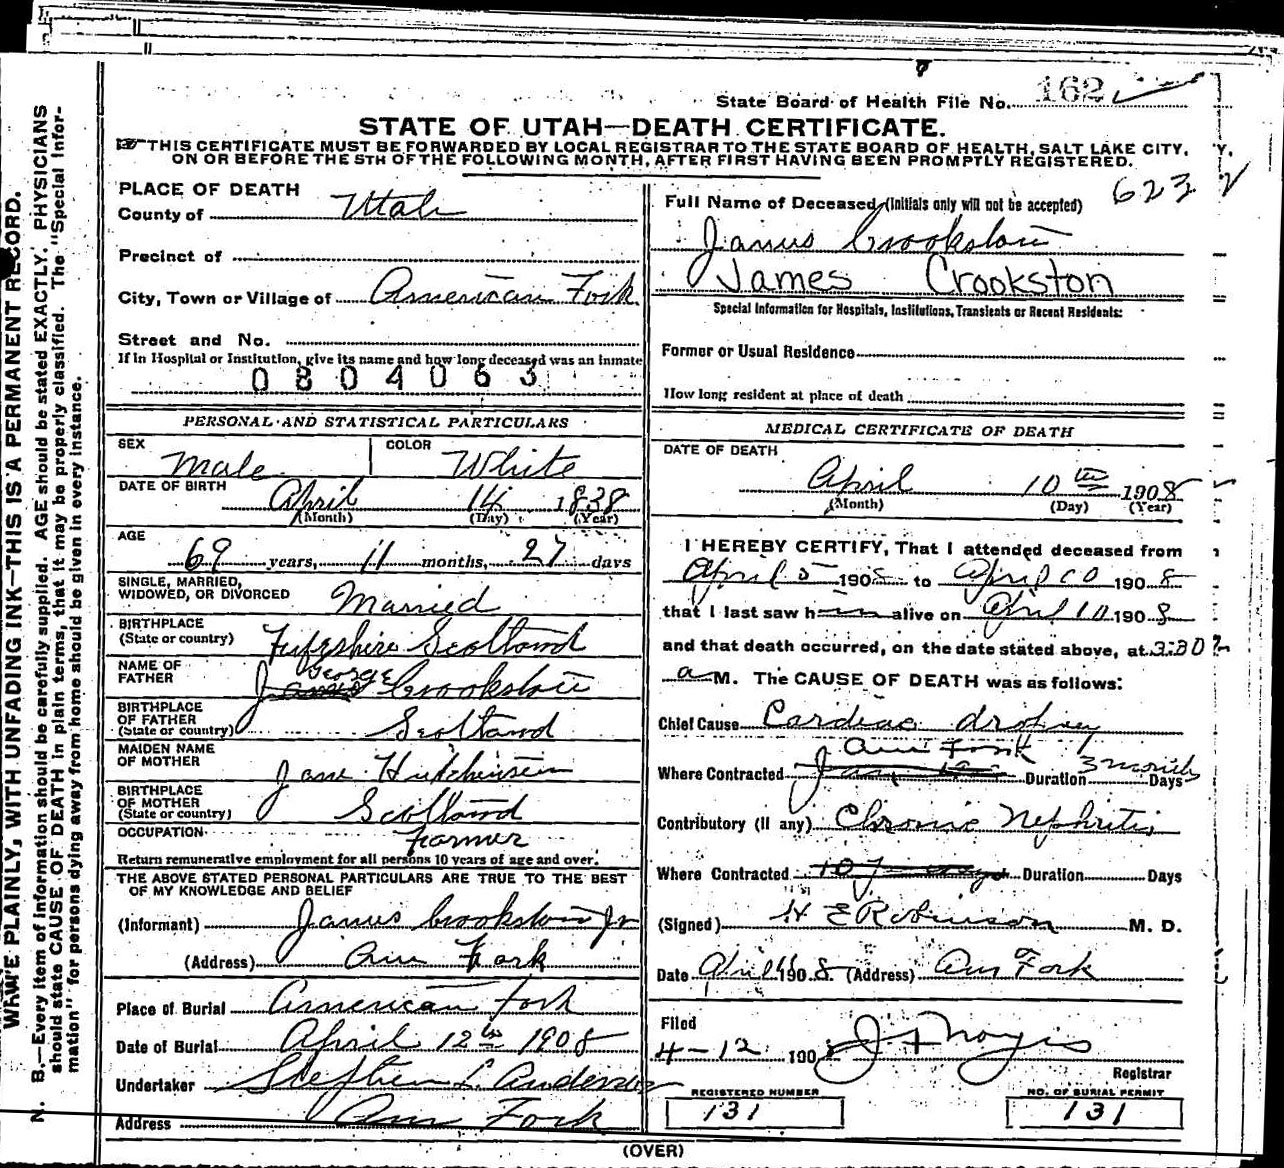 State Board of Health File No. 162
STATE OF UTAH—DEATH CERTIFICATE.
THIS CERTIFICATE MUST BE FORWARDED BY LOCAL REGISTRAR TO THE STATE BOARD OF HEALTH, SALT LAKE CITY,
ON OR BEFORE THE 5TH OF THE FOLLOWING MONTH, AFTER FIRST HAVING BEEN PROMPTLY REGISTERED.
PLACE OF DEATH
County of Utah
Precinct of
City, Town or Village of American Fork
Street and No.
If in Hospital or Institution, give its name and how long deceased was an inmate
0804063
PERSONAL AND STATISTICAL PARTICULARS
SEX Male COLOR White
DATE OF BIRTH April 14 1838
(Month) (Day) (Year)
AGE
69 years, 11 months, 27 days
SINGLE, MARRIED,
WIDOWED, OR DIVORCED Married
BIRTHPLACE
(State or country) Scotland
NAME OF
FATHER George Crookston
BIRTHPLACE
OF FATHER
(State or country) Scotland
MAIDEN NAME
OF MOTHER Jane Hutchinson
BIRTHPLACE
OF MOTHER
(State or country) Scotland
OCCUPATION Farmer
Return remunerative employment for all persons 10 years of age and over.
THE ABOVE STATED PERSONAL PARTICULARS ARE TRUE TO THE BEST
OF MY KNOWLEDGE AND BELIEF
(Informant) James Crookston Jr
(Address) Am Fork
Place of Burial American Fork
Date of Burial April 12th 1908
Undertaker Stephen L. Anderson
Address Am Fork
6232
Full Name of Deceased (Initials only will not be accepted)
James Crookston
James Crookston
Special Information for Hospitals, Institutions, Transients or Recent Residents:
Former or Usual Residence
How long resident at place of death
MEDICAL CERTIFICATE OF DEATH
DATE OF DEATH
April 10th 1908
(Month) (Day) (Year)
I HEREBY CERTIFY, That I attended deceased from
April 5 1908 to April 10 1908
that I last saw him alive on April 10 1908
and that death occurred, on the date stated above, at 3:30
a M. The CAUSE OF DEATH was as follows:
Chief Cause Cardiac dropsy
Am Fork
Where Contracted Duration 3 months Days
Contributory (if any) Chronic Nephritis
Where Contracted Duration Days
(Signed) H E Robinson M. D.
Date April 11 1908 (Address) Am Fork
Filed
4-12 1908 Registrar
REGISTERED NUMBER
131
NO. OF BURIAL PERMIT
131
(OVER)
WRITE PLAINLY, WITH UNFADING INK—THIS IS A PERMANENT RECORD.
N. B.—Every item of information should be carefully supplied. AGE should be stated EXACTLY. PHYSICIANS
should state CAUSE OF DEATH in plain terms, that it may be properly classified. The "Special Infor-
mation" for persons dying away from home should be given in every instance.